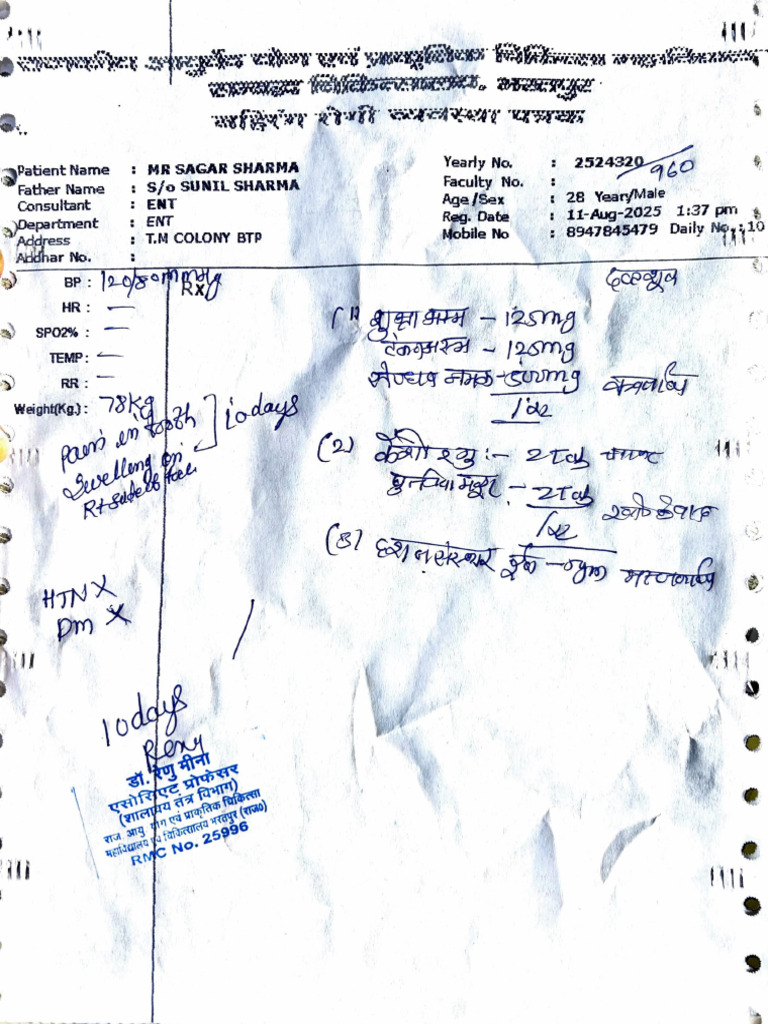 राजकीय आयुर्वेद योग एवं प्राकृतिक चिकित्सा महाविद्यालय
चिकित्सालय, भरतपुर
बहिरंग रोगी व्यवस्था पत्रक
Patient Name : MR SAGAR SHARMA
Father Name : S/o SUNIL SHARMA
Consultant : ENT
Department : ENT
Address : T.M COLONY BTP
Addhar No. :
Yearly No. : 2524320 / 960
Faculty No. :
Age /Sex : 28 Year/Male
Reg. Date : 11-Aug-2025 1:37 pm
Mobile No : 8947845479 Daily No. : 10
BP : 120/80mmHg
Rx
HR : —
SPO2% : —
TEMP : —
RR : —
Weight(Kg.) : 78Kg
Pain in tooth
Swelling on
Rt side of face
10 days
HTN X
Dm X
दन्तशूल
(1) शुभ्राभस्म – 125mg
टंकणभस्म – 125mg
सैन्धव नमक – 500mg
(2) कैशोर गु :- 2Tab
- 2Tab
(3) दशनसंस्कार चूर्ण –
10 days
Renu
डॉ. रेणु मीना
एसोसिएट प्रोफेसर
(शालाक्य तंत्र विभाग)
राज. आयु. योग एवं प्राकृतिक चिकित्सा
महाविद्यालय एवं चिकित्सालय भरतपुर (राज०)
RMC No. 25996